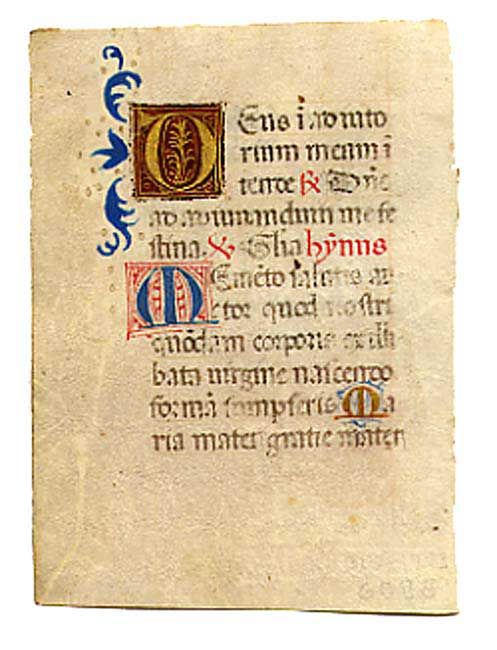 Deus i adiuto
rium meum i
tende ℟ Dñe
ad adiuuandum me fe
stina. ℟ Glia hȳnus
Memēto salutis au
ctor quod nostri
quōdam corporis ex illi
bata uirgine nascendo
formā sumpseris Ma
ria mater gratie mater